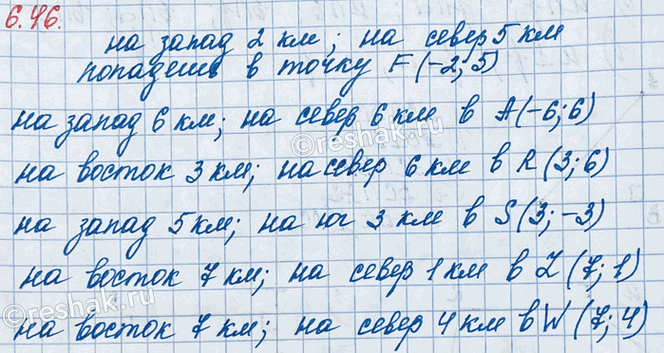 6.46.
на запад 2 км; на север 5 км
попадешь в точку F (-2; 5)
на запад 6 км; на север 6 км в A(-6; 6)
на восток 3 км; на север 6 км в R (3; 6)
на запад 5 км; на юг 3 км в S (3; -3)
на восток 7 км; на север 1 км в Z (7; 1)
на восток 7 км; на север 4 км в W (7; 4)
©reshak.ru
©reshak.ru